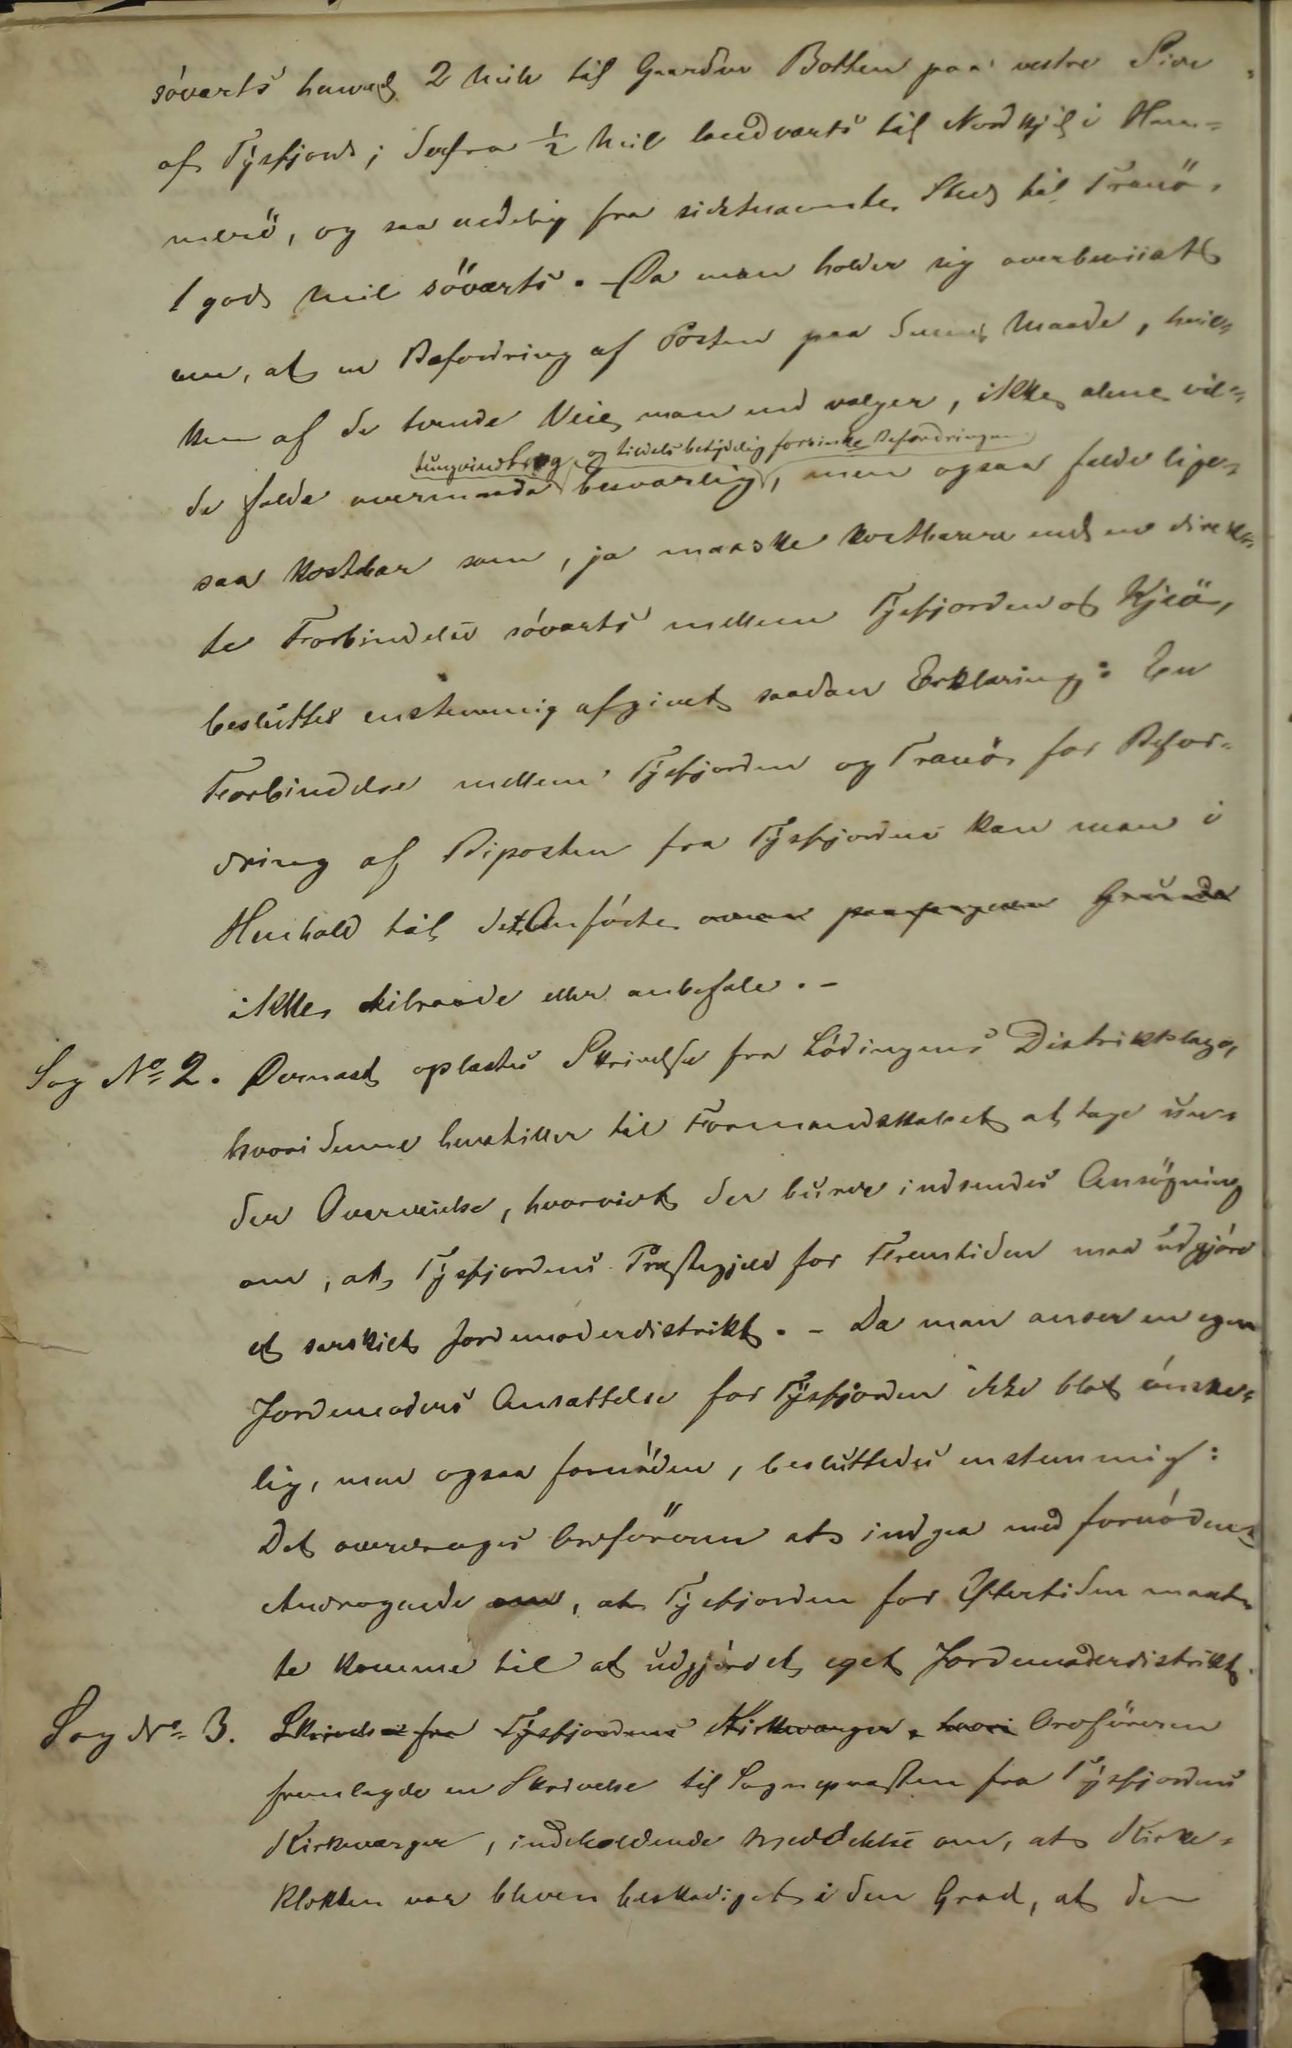 søværts henved 2 Mile til Gaarden Botten paa vestre Side
af Tysfjord; derfra ½ Mil landværts til Nordkjil i Ham-
merö, og saa endelig fra sidstnævnte Sted til Tranö,
1 god Mil söværts. Da man holder sig overbeviist
om, at en Befordring af Posten paa denne Maade, hvil-
ken af de tvende Veie man end vælger, ikke alene vil-
tungvindt og og tildels betydelig forsinke Befordringen
de falde overmaade besværlig, men ogsaa falde lige-
saa kostbar som, ja maaske kostbarere end en direk-
te Forbindelse søværts mellem Tysfjorden og Kjeö,
besluttes enstemmig afgivet saadan Erklæring: En
Forbindelse mellem Tysfjorden og Tranö for Befor-
dring af Biposten fra Tysfjorden kan man i
Henhold til det Anførte ikke tilraade eller anbefale. -
Sag No 2. Dernæst oplæstes Skrivelse fra Lødingens Distriktslæge,
hvori denne henstiller til Formandskabet at tage un-
der Overveielse, hvorvidt der burde indsendes Ansøgning
om, at Tysfjordens Præstegjeld for Fremtiden maa udgjøre
et særskilt Jordmoderdistrikt. - Da man anser en egen
Jordemoders Ansættelse for Tysfjorden ikke blot ønske-
lig, men ogsaa fornøden, besluttedes enstemmig:
Det overdrages Ordföreren at indgaa med fornødent
Andragende om, at Tysfjorden for Eftertiden maat-
te komme til at udgjøre et eget Jordemoderdistrikt.
Sag No 3. Skrivelse fra Tysfjordens Kirkeværger, hvori Ordföreren
fremlagde en Skrivelse til Sognepræsten fra Tysfjordens
Kirkeværger, indeholdende Meddelelse om, at Kirke-
klokken var bleven beskadiget i den Grad, at den